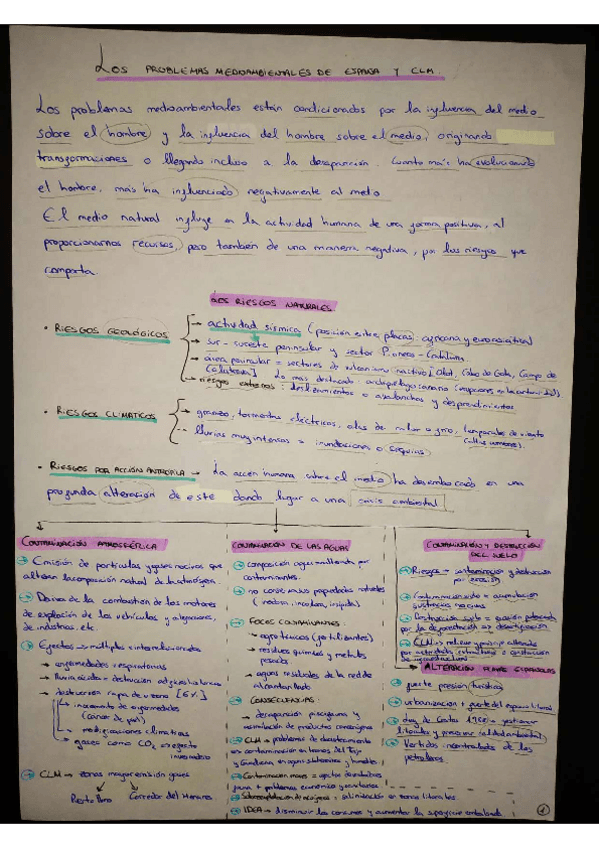 LOS PROBLEMAS MEDIOAMBIENTALES DE ESPAÑA Y CLM
Los problemas medioambientales están condicionados por la influencia del medio
sobre el hombre y la influencia del hombre sobre el medio, originando
transformaciones o llegando incluso a la desaparición. Cuanto más ha evolucionado
el hombre, más ha influenciado negativamente al medio
El medio natural influye en la actividad humana de una forma positiva, al
proporcionarnos recursos, pero también de una manera negativa, por los riesgos que
comporta.
LOS RIESGOS NATURALES
• RIESGOS GEOLÓGICOS
→ actividad sísmica (posición entre placas: africana y euroasiática)
→ sur-sureste peninsular y sector Pirineos-Cataluña
→ área peninsular = sectores de vulcanismo inactivo [Olot, Cabo de Gata, Campo de
Calatrava] Lo más destacado: archipiélago canario
→ riesgos externos: deslizamientos o avalanchas y desprendimientos
• RIESGOS CLIMÁTICOS
→ granizo, tormentas eléctricas, olas de calor o frío, temporales de viento
lluvias muy intensas = inundaciones o sequías
• RIESGOS POR ACCIÓN ANTRÓPICA → La acción humana sobre el medio ha desembocado en una
profunda alteración de este dando lugar a una crisis ambiental
CONTAMINACIÓN ATMOSFÉRICA
→ Emisión de partículas y gases nocivos que
alteran la composición natural de la atmósfera.
→ Deriva de la combustión de los motores
de explosión de los vehículos y aligeraciones,
de industrias, etc
→ Efectos → múltiples e interrelacionados
→ enfermedades respiratorias
→ lluvia ácida = destrucción
→ destrucción capa de ozono [6%]
→ incremento de enfermedades
(cáncer de piel)
→ modificaciones climáticas
→ gases como CO₂ → efecto
invernadero
→ CLM → zonas mayor emisión gases
Puertollano Corredor del Henares
CONTAMINACIÓN DE LAS AGUAS
→ Composición agua alterada por
contaminantes.
→ no conserva sus propiedades naturales
(inodora, incolora, insípida)
→ FOCOS CONTAMINANTES:
→ agrotóxicos (fertilizantes)
→ residuos químicos y metales
pesados
→ aguas residuales de la red de
alcantarillado
→ CONSECUENCIAS:
→ desaparición piscifauna y
asimilación de productos cancerígenos
→ CLM → problemas de abastecimiento
en contaminación en tramos del Tajo
y Guadiana en aguas subterráneas y humedales
→ Contaminación mares =
fauna + problemas económicos y sanitarios
→ Sobreexplotación de acuíferos: salinización en zonas litorales
→ IDEA → disminuir los consumos y aumentar la superficie
CONTAMINACIÓN Y DESTRUCCIÓN
DEL SUELO
→ Riesgos → contaminación y destrucción
por erosión
→ Contaminación suelo = acumulación
sustancias nocivas
→ Destrucción suelo = erosión potenciada
por la deforestación → desertificación
→ CLM →
→ ALTERACIÓN
→ fuerte presión turística
→ urbanización
→ Ley de Costas 1988 → gestionar
litorales y preservar calidad ambiental
→ Vertidos incontrolados de los
petroleros
1